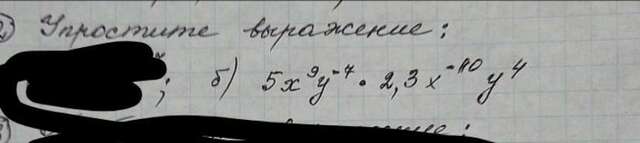 Упростите выражение:
; б) 5x⁹y⁻⁴ · 2,3x⁻¹⁰y⁴